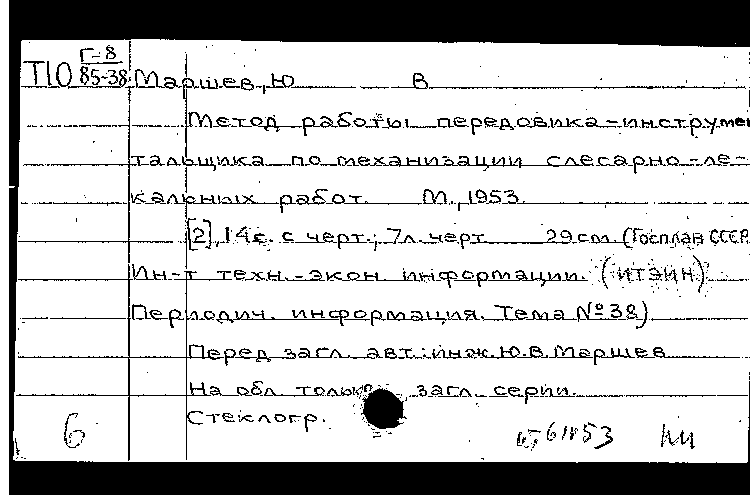 Г-8
П10 85-38 Маршев, Ю В
Метод работы передовика-инструмен
тальщика по механизации слесарно-ле-
кальных работ. М., 1953.
[2], 14с. с черт.; 7л. черт. 29см. (Госплан СССР.
Ин-т техн.-экон. информации. (ИТЭИН)
Периодич. информация. Тема №38)
Перед загл. авт.: инж. Ю.В. Маршев
На обл. только загл. серии.
Стеклогр.
6